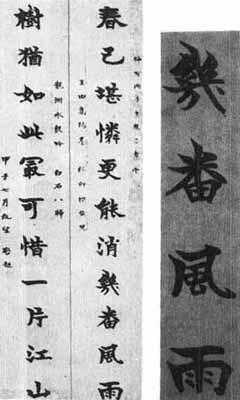 春已堪憐更能消幾番風雨
樹猶如此冣可惜一片江山
白石八歸
甲子七月
幾番風雨